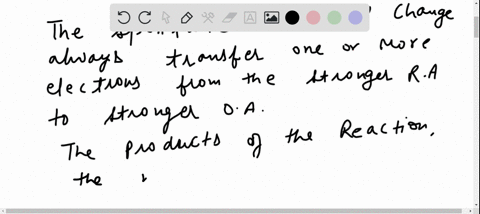 The change
always transfer one or more
electrons from the stronger R.A
to stronger O.A.
The products of the Reaction,
the